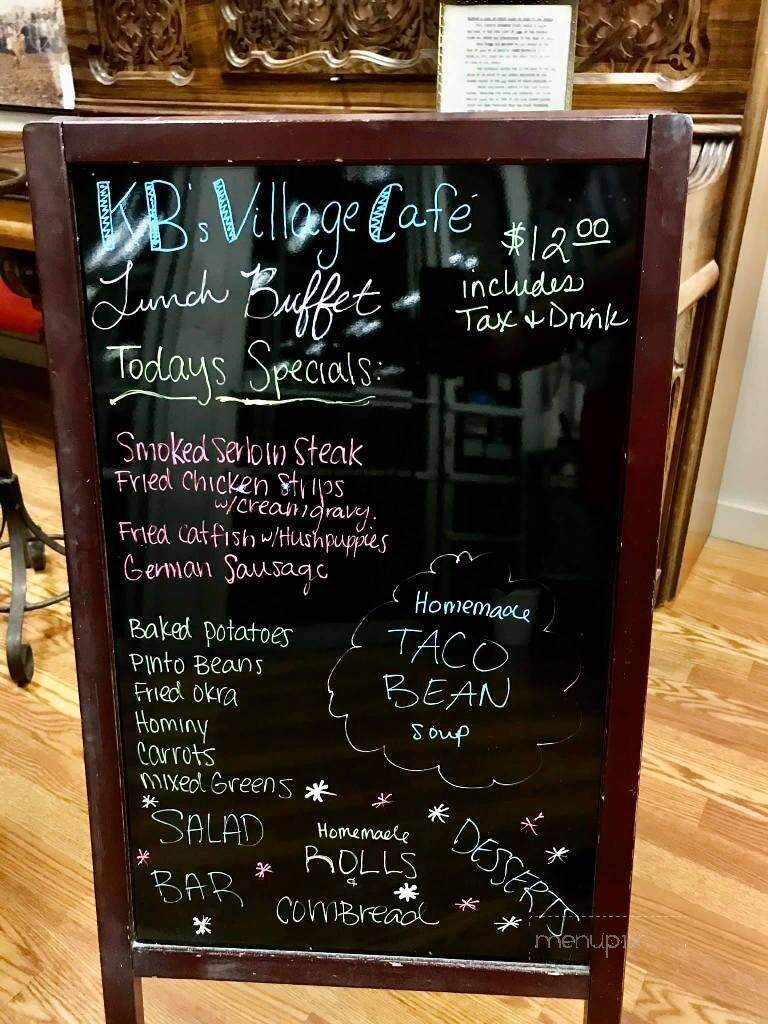 KB's Village Café
$12.00
includes
Tax & Drink
Lunch Buffet
Todays Specials:
Smoked Serloin Steak
Fried Chicken Strips
w/creamgravy.
Fried Catfish w/Hushpuppies
German Sausage
Baked Potatoes
Pinto Beans
Fried Okra
Hominy
Carrots
Mixed Greens
Homemade
TACO
BEAN
Soup
SALAD
BAR
Homemade
ROLLS
&
CORNBread
DESSERTS
menupix